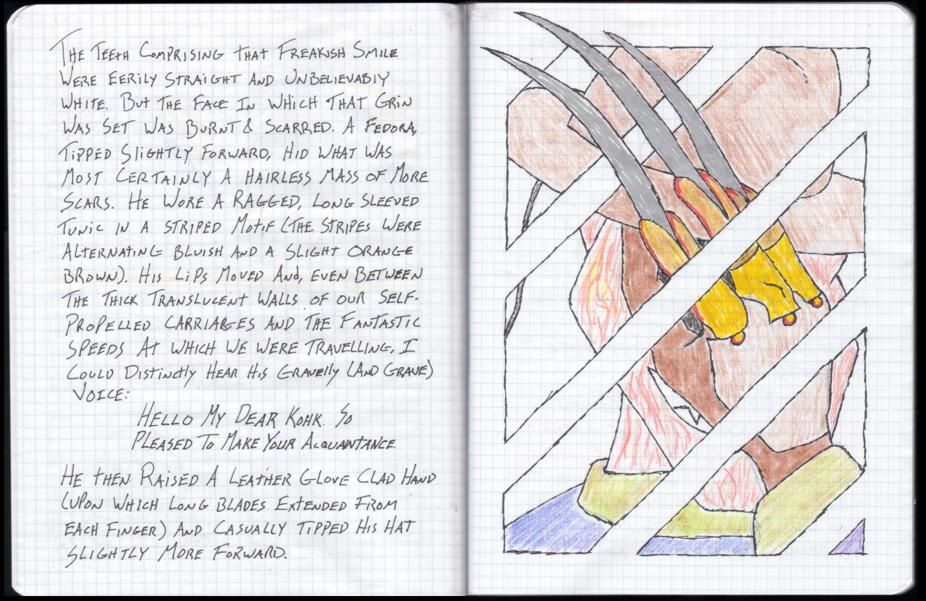 THE TEETH COMPRISING THAT FREAKISH SMILE
WERE EERILY STRAIGHT AND UNBELIEVABLY
WHITE. BUT THE FACE IN WHICH THAT GRIN
WAS SET WAS BURNT & SCARRED. A FEDORA,
TIPPED SLIGHTLY FORWARD, HID WHAT WAS
MOST CERTAINLY A HAIRLESS MASS OF MORE
SCARS. HE WORE A RAGGED, LONG SLEEVED
TUNIC IN A STRIPED MOTIF (THE STRIPES WERE
ALTERNATING BLUISH AND A SLIGHT ORANGE
BROWN). HIS LIPS MOVED AND, EVEN BETWEEN
THE THICK TRANSLUCENT WALLS OF OUR SELF-
PROPELLED CARRIAGES AND THE FANTASTIC
SPEEDS AT WHICH WE WERE TRAVELLING, I
COULD DISTINCTLY HEAR HIS GRAVELLY (AND GRAVE)
VOICE:
HELLO MY DEAR KOHK. SO
PLEASED TO MAKE YOUR ACQUAINTANCE
HE THEN RAISED A LEATHER GLOVE CLAD HAND
(UPON WHICH LONG BLADES EXTENDED FROM
EACH FINGER) AND CASUALLY TIPPED HIS HAT
SLIGHTLY MORE FORWARD.